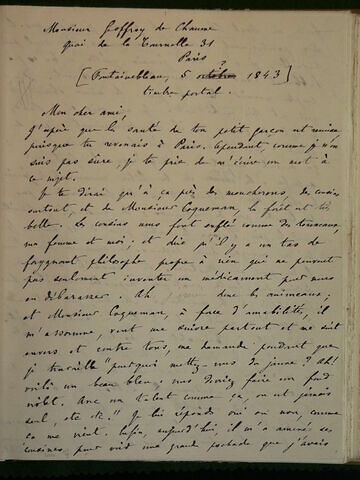 Monsieur Geoffroy de Chaume
Quai de la Tournelle 31
Paris
[Fontainebleau, 5 octobre ? 1843]
timbre postal.
Mon cher ami,
J'espère que la santé de ton petit garçon est remise,
puisque tu revenais à Paris. Cependant, comme je n'en
suis pas sûre, je te prie de m'écrire un mot à
ce sujet.
Je te dirai qu'à ça près des moucherons, des cousins
surtout, et de Monsieur Coqueman, la forêt est très
belle. Les cousins nous font enflés comme des tonneaux,
ma femme et moi; et dire qu'il y a un tas de
faignant philosophe propre à rien qui ne peuvent
pas seulement inventer un médicament pour nous
en débarasser. Ah donc les animeaux;
et Monsieur Coqueman, à force d'amabilités, il
m'assomme, veut me suivre partout et me suit
envers et contre tous, me demande pendant que
je travaille "pourquoi mettez-vous du jaune? Ah!
voilà un beau bleu; vous devriez faire un fond
noir. Avec un talent comme ça, on est jamais
seul, etc etc." Je lui réponds oui ou non, comme
ça me vient. Enfin, aujourd'hui, il m'a amené ses
cousines, pour voir une grande pochade que j'avais